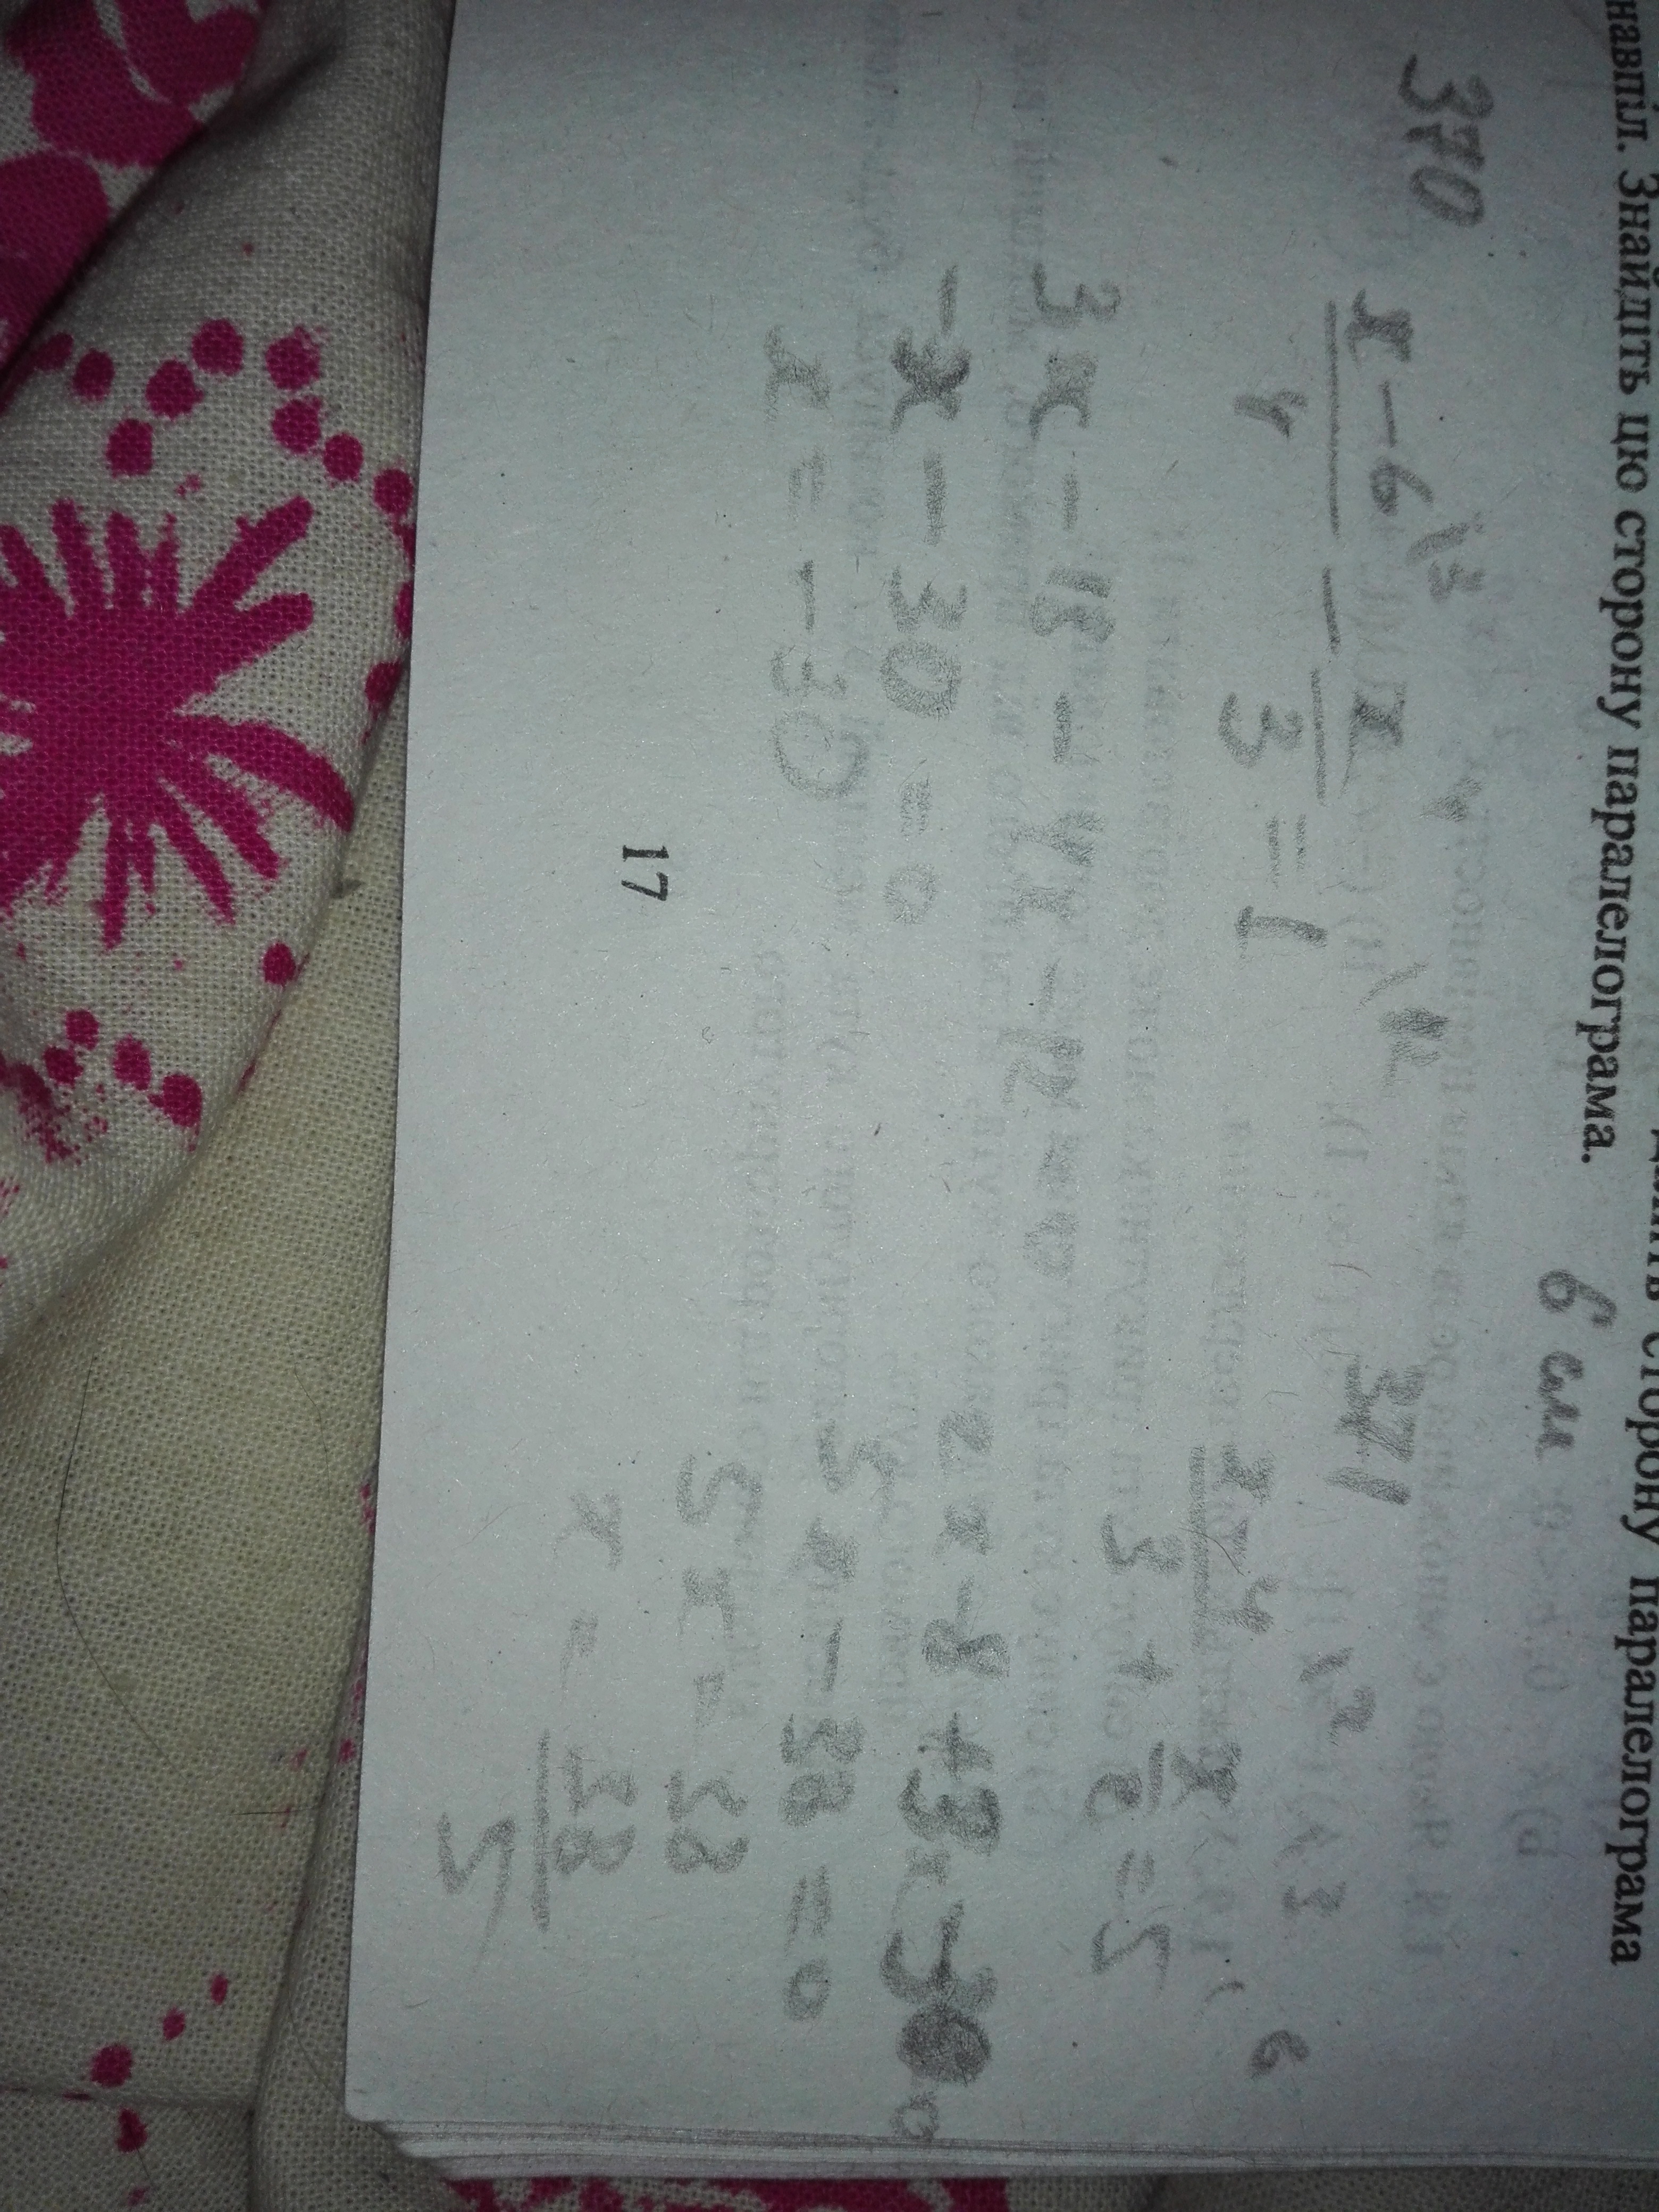 сторону паралелограма
навпіл. Знайдіть цю сторону паралелограма.
6 см
370
x - 6 \3 x 4
— - — = 1 \12
4 3
3x - 18 - 4x - 12 = 0
-x - 30 = 0
x = -30
371
x-4 \2 x \3
— + — = 5 \ 6
3 2
2x - 8 + 3x - 30 = 0
5x - 38 = 0
5x = 38
x = 38
5
17